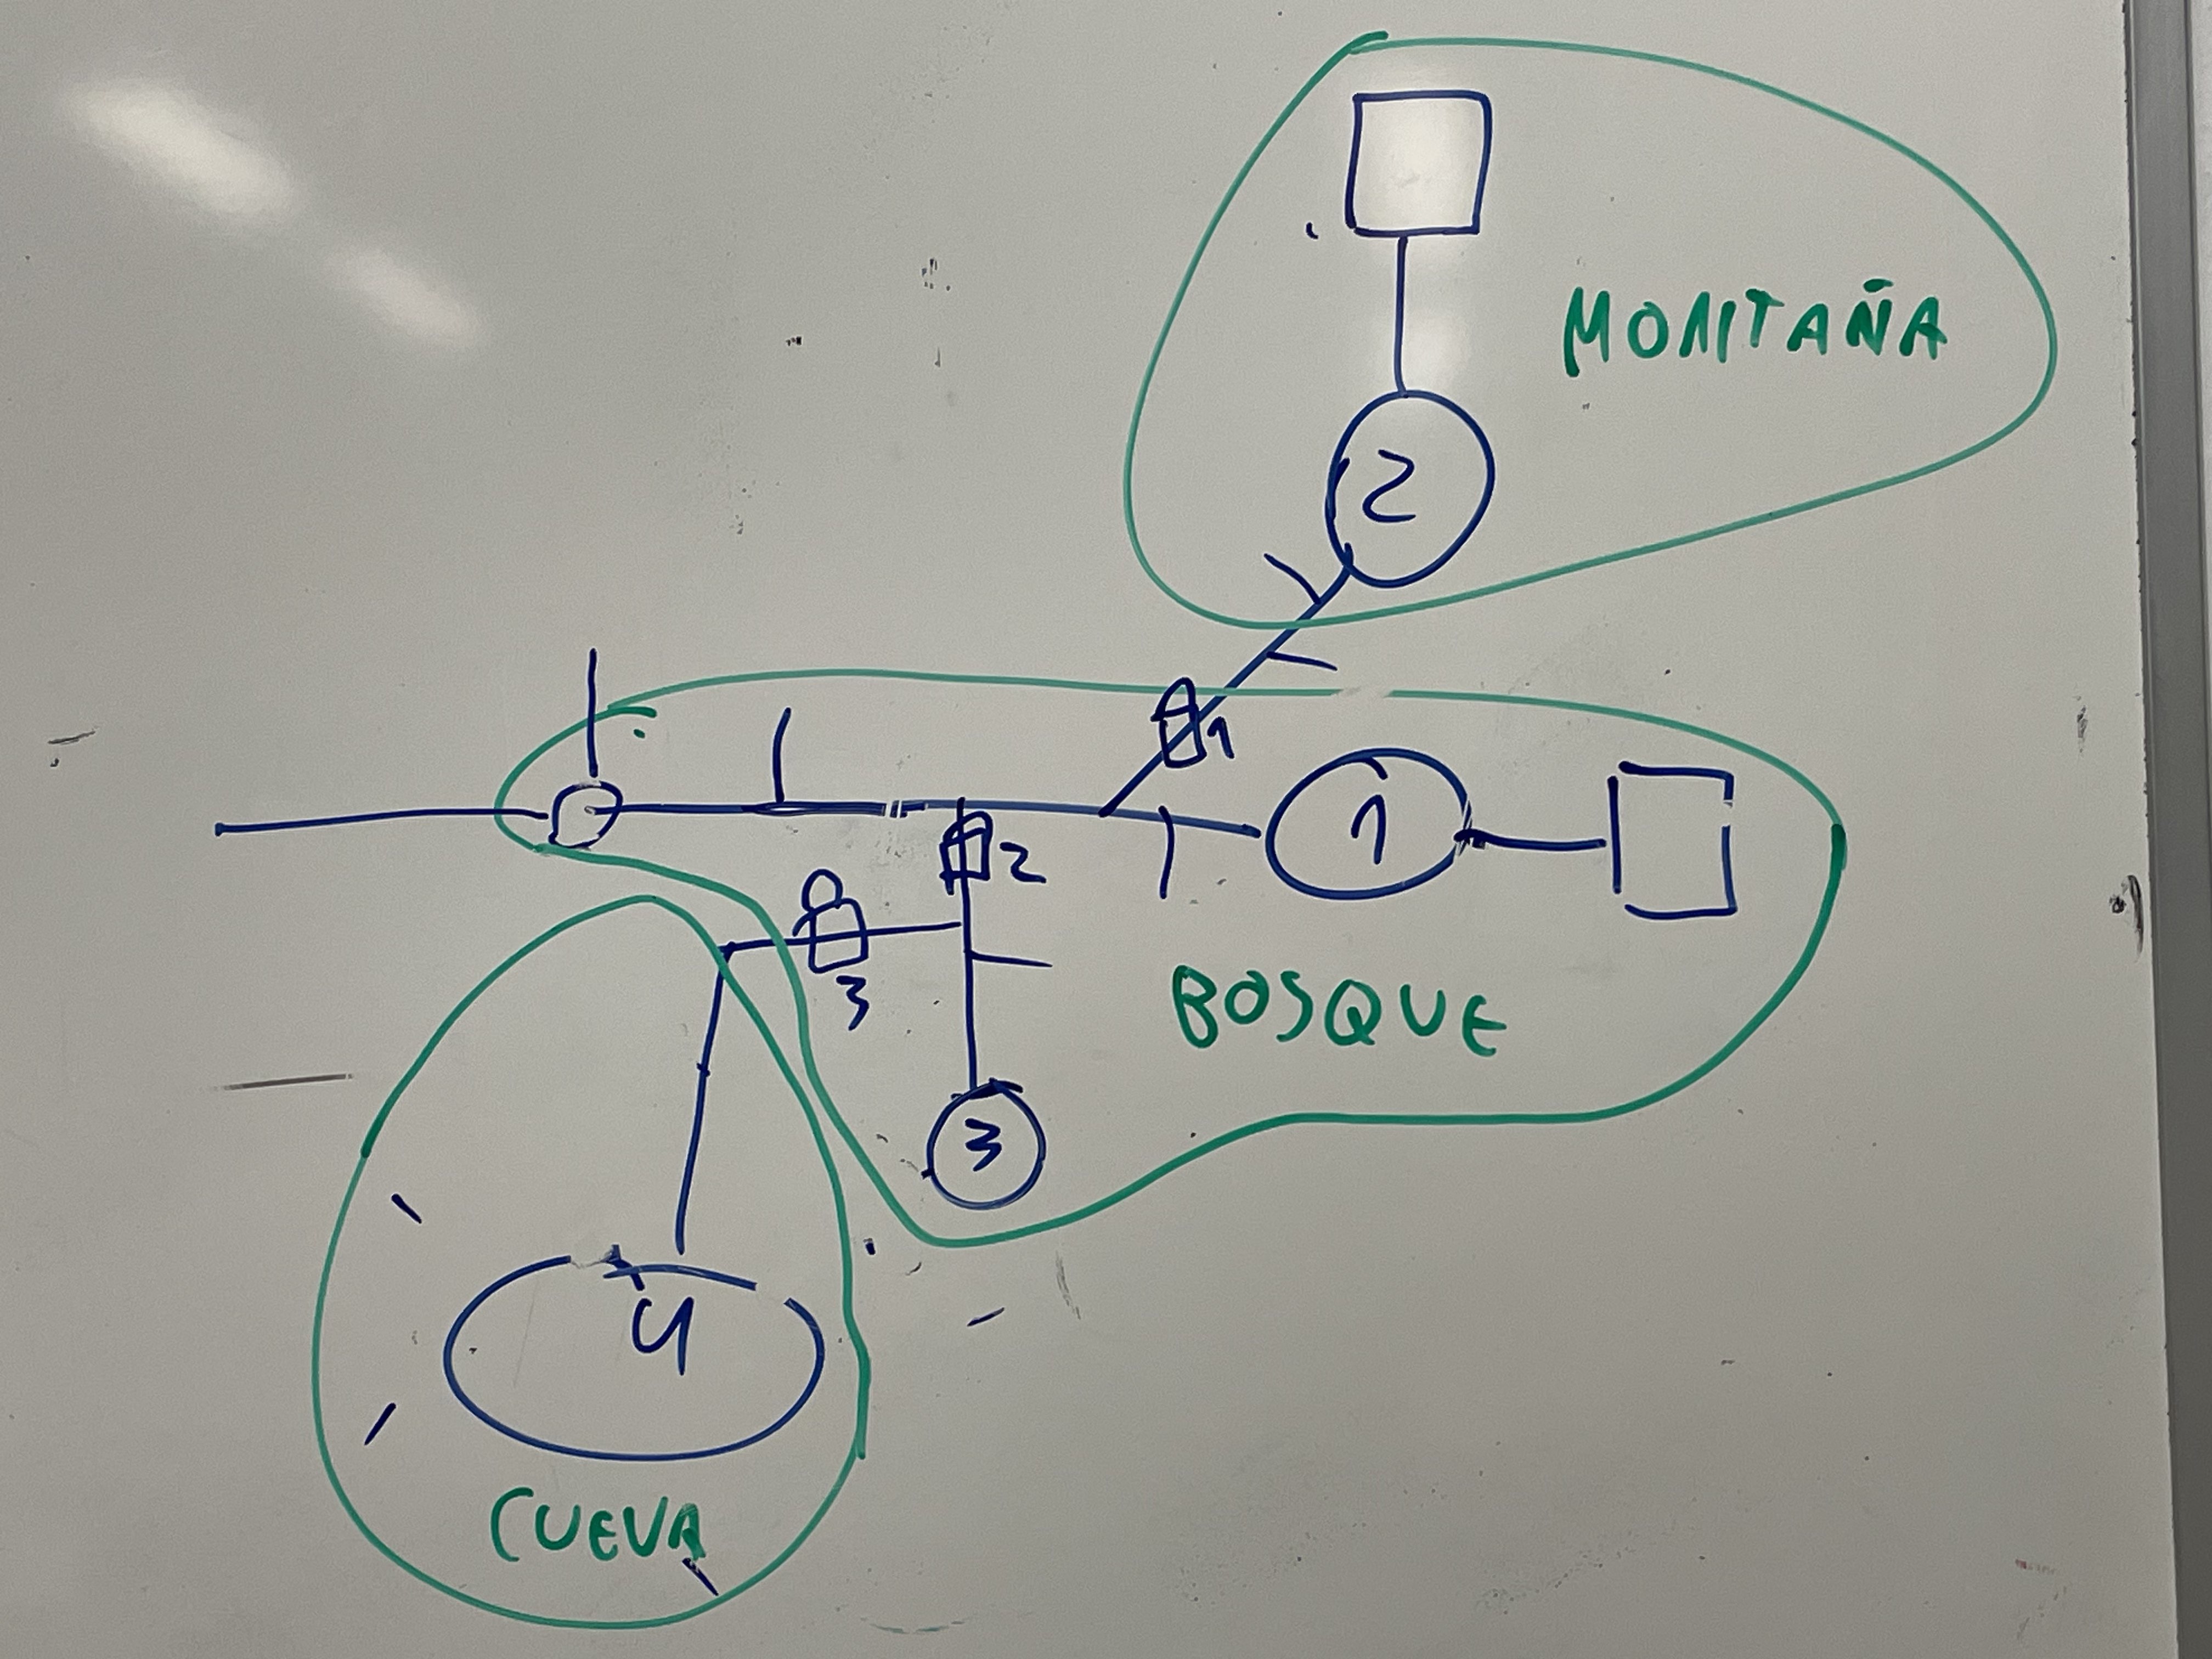 MONTAÑA
2
1
1
2
3
BOSQUE
3
4
CUEVA